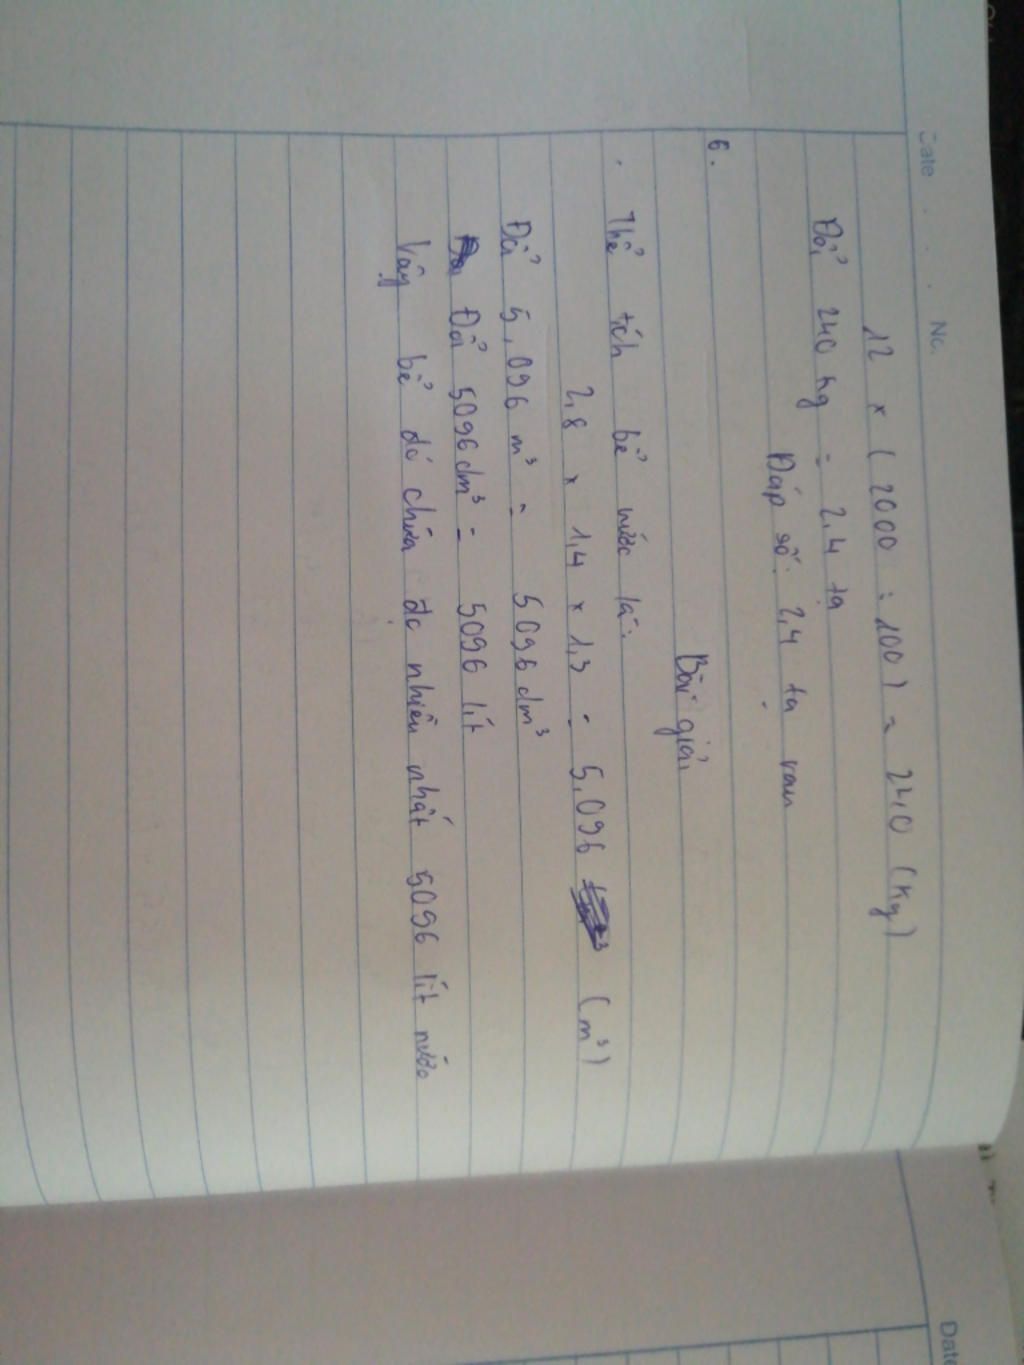 Date . . . No.
12 × ( 2000 : 100 ) = 240 (kg)
Đổi 240 kg = 2,4 tạ
Đáp số: 2,4 tạ rau
6.
Bài giải
Thể tích bể nước là:
2,8 × 1,4 × 1,3 = 5,096 (m³)
Đổi 5,096 m³ = 5096 dm³
Đổi 5096 dm³ = 5096 lít
Vậy bể đó chứa đc nhiều nhất 5096 lít nước
Dat